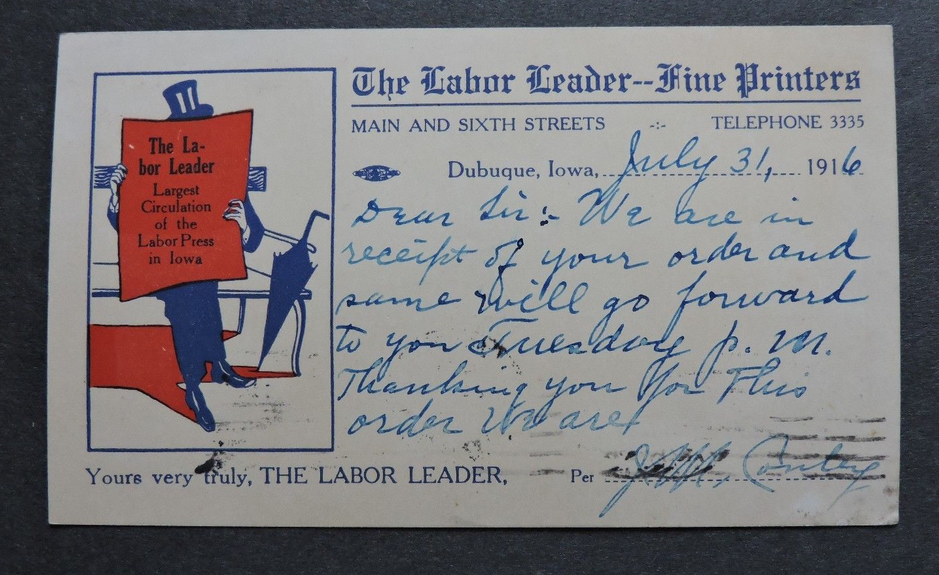 The La-
bor Leader
Largest
Circulation
of the
Labor Press
in Iowa
The Labor Leader--Fine Printers
MAIN AND SIXTH STREETS -:- TELEPHONE 3335
Dubuque, Iowa, July 31, 1916
Dear Sir:- We are in
receipt of your order and
same will go forward
to you Tuesday p. m.
Thanking you for This
order We are
Yours very truly, THE LABOR LEADER, Per Conley